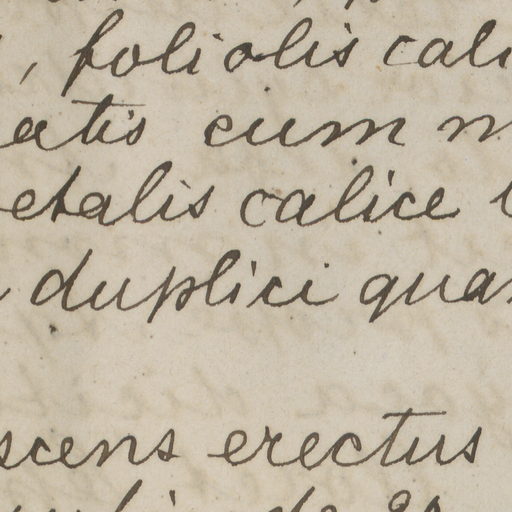 , foliolis cali
atis cum m
etalis calice
duplici qua
scens erectus